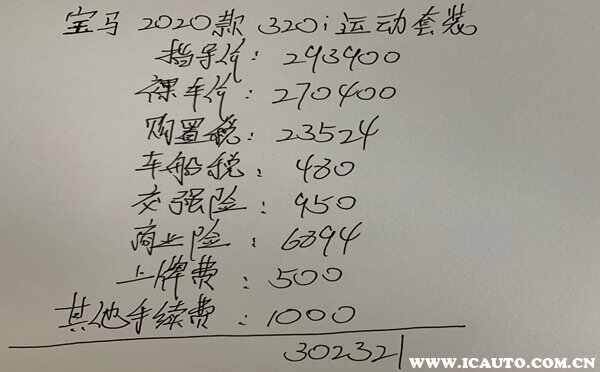 宝马 2020款 320i运动套装
指导价：293900
裸车价：270400
购置税：23524
车船税：480
交强险：950
商业险：6894
上牌费：500
其他手续费：1000
302321
WWW.ICAUTO.COM.CN